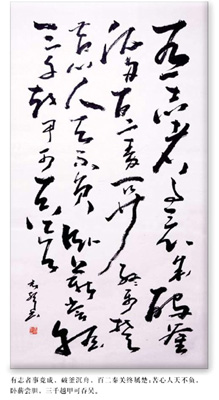 有志者事竟成破釜
沉舟百二秦关终属楚
苦心人天不负卧薪尝胆
三千越甲可吞吴
有志者事竟成，破釜沉舟，百二秦关终属楚；苦心人天不负，
卧薪尝胆，三千越甲可吞吴。